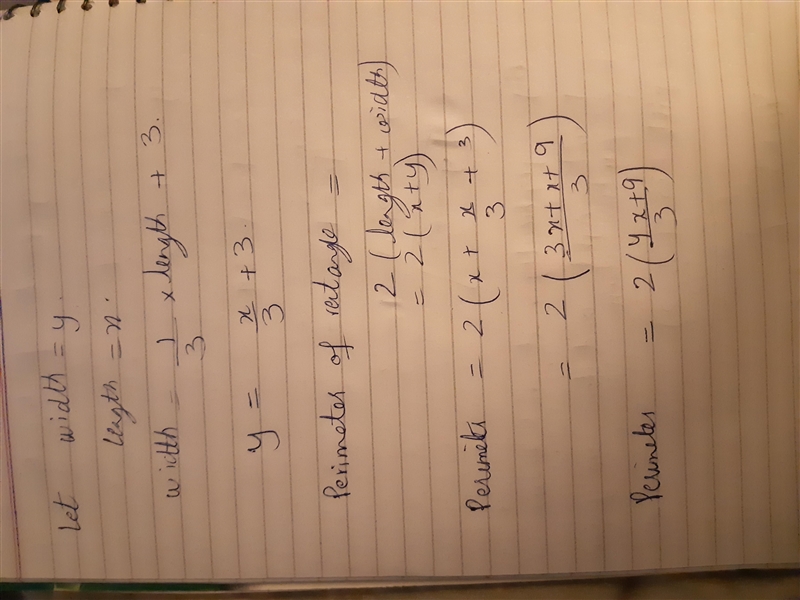 Let width = y.
length = x.
width = 1/3 x length + 3.
y = x/3 + 3.
Perimeter of rectange =
2 (length + width)
= 2 (x+y)
Perimeter = 2 (x + x/3 + 3)
= 2 (3x + x + 9/3)
Perimeter = 2 (4x+9/3)